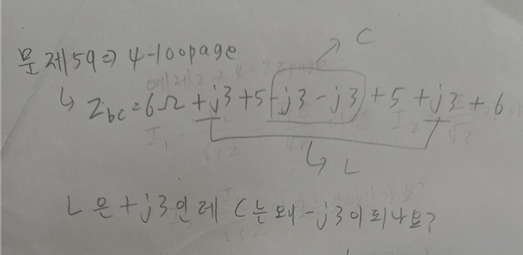 문제59⇒ 4-100page
C
↳ Zbc=6Ω+j3+5-j3-j3+5+j3+6
↳ L
L은 +j3인데 C는 왜 -j3이 되나요?